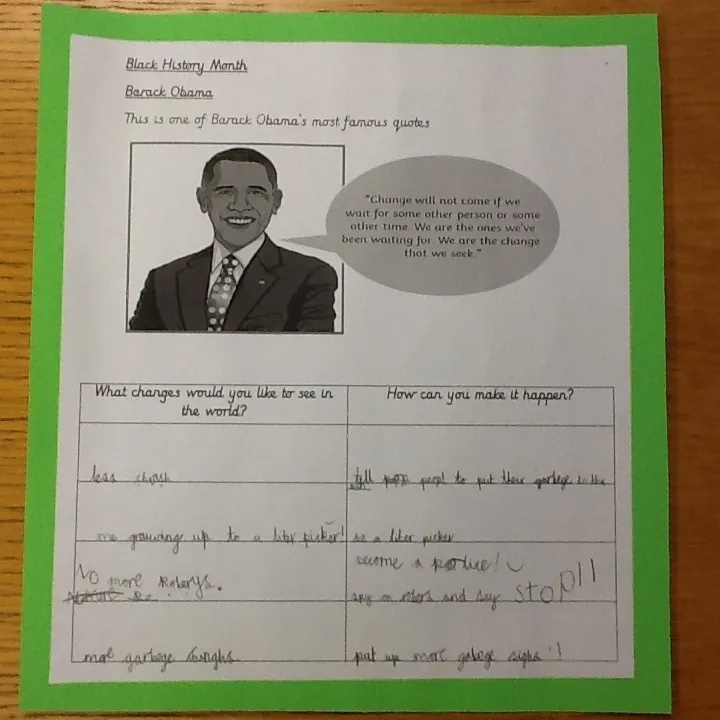 Black History Month
Barack Obama
This is one of Barack Obama's most famous quotes
"Change will not come if we
wait for some other person or some
other time. We are the ones we've
been waiting for. We are the change
that we seek."
What changes would you like to see in
the world?
How can you make it happen?
less
tell peopl to put their garbege in the
me grouwing up to a liter picker!
be a liter picker
No more Roberys.
become a
spy on robers and say STOP!!
more garbege
put up more gabege sighs !